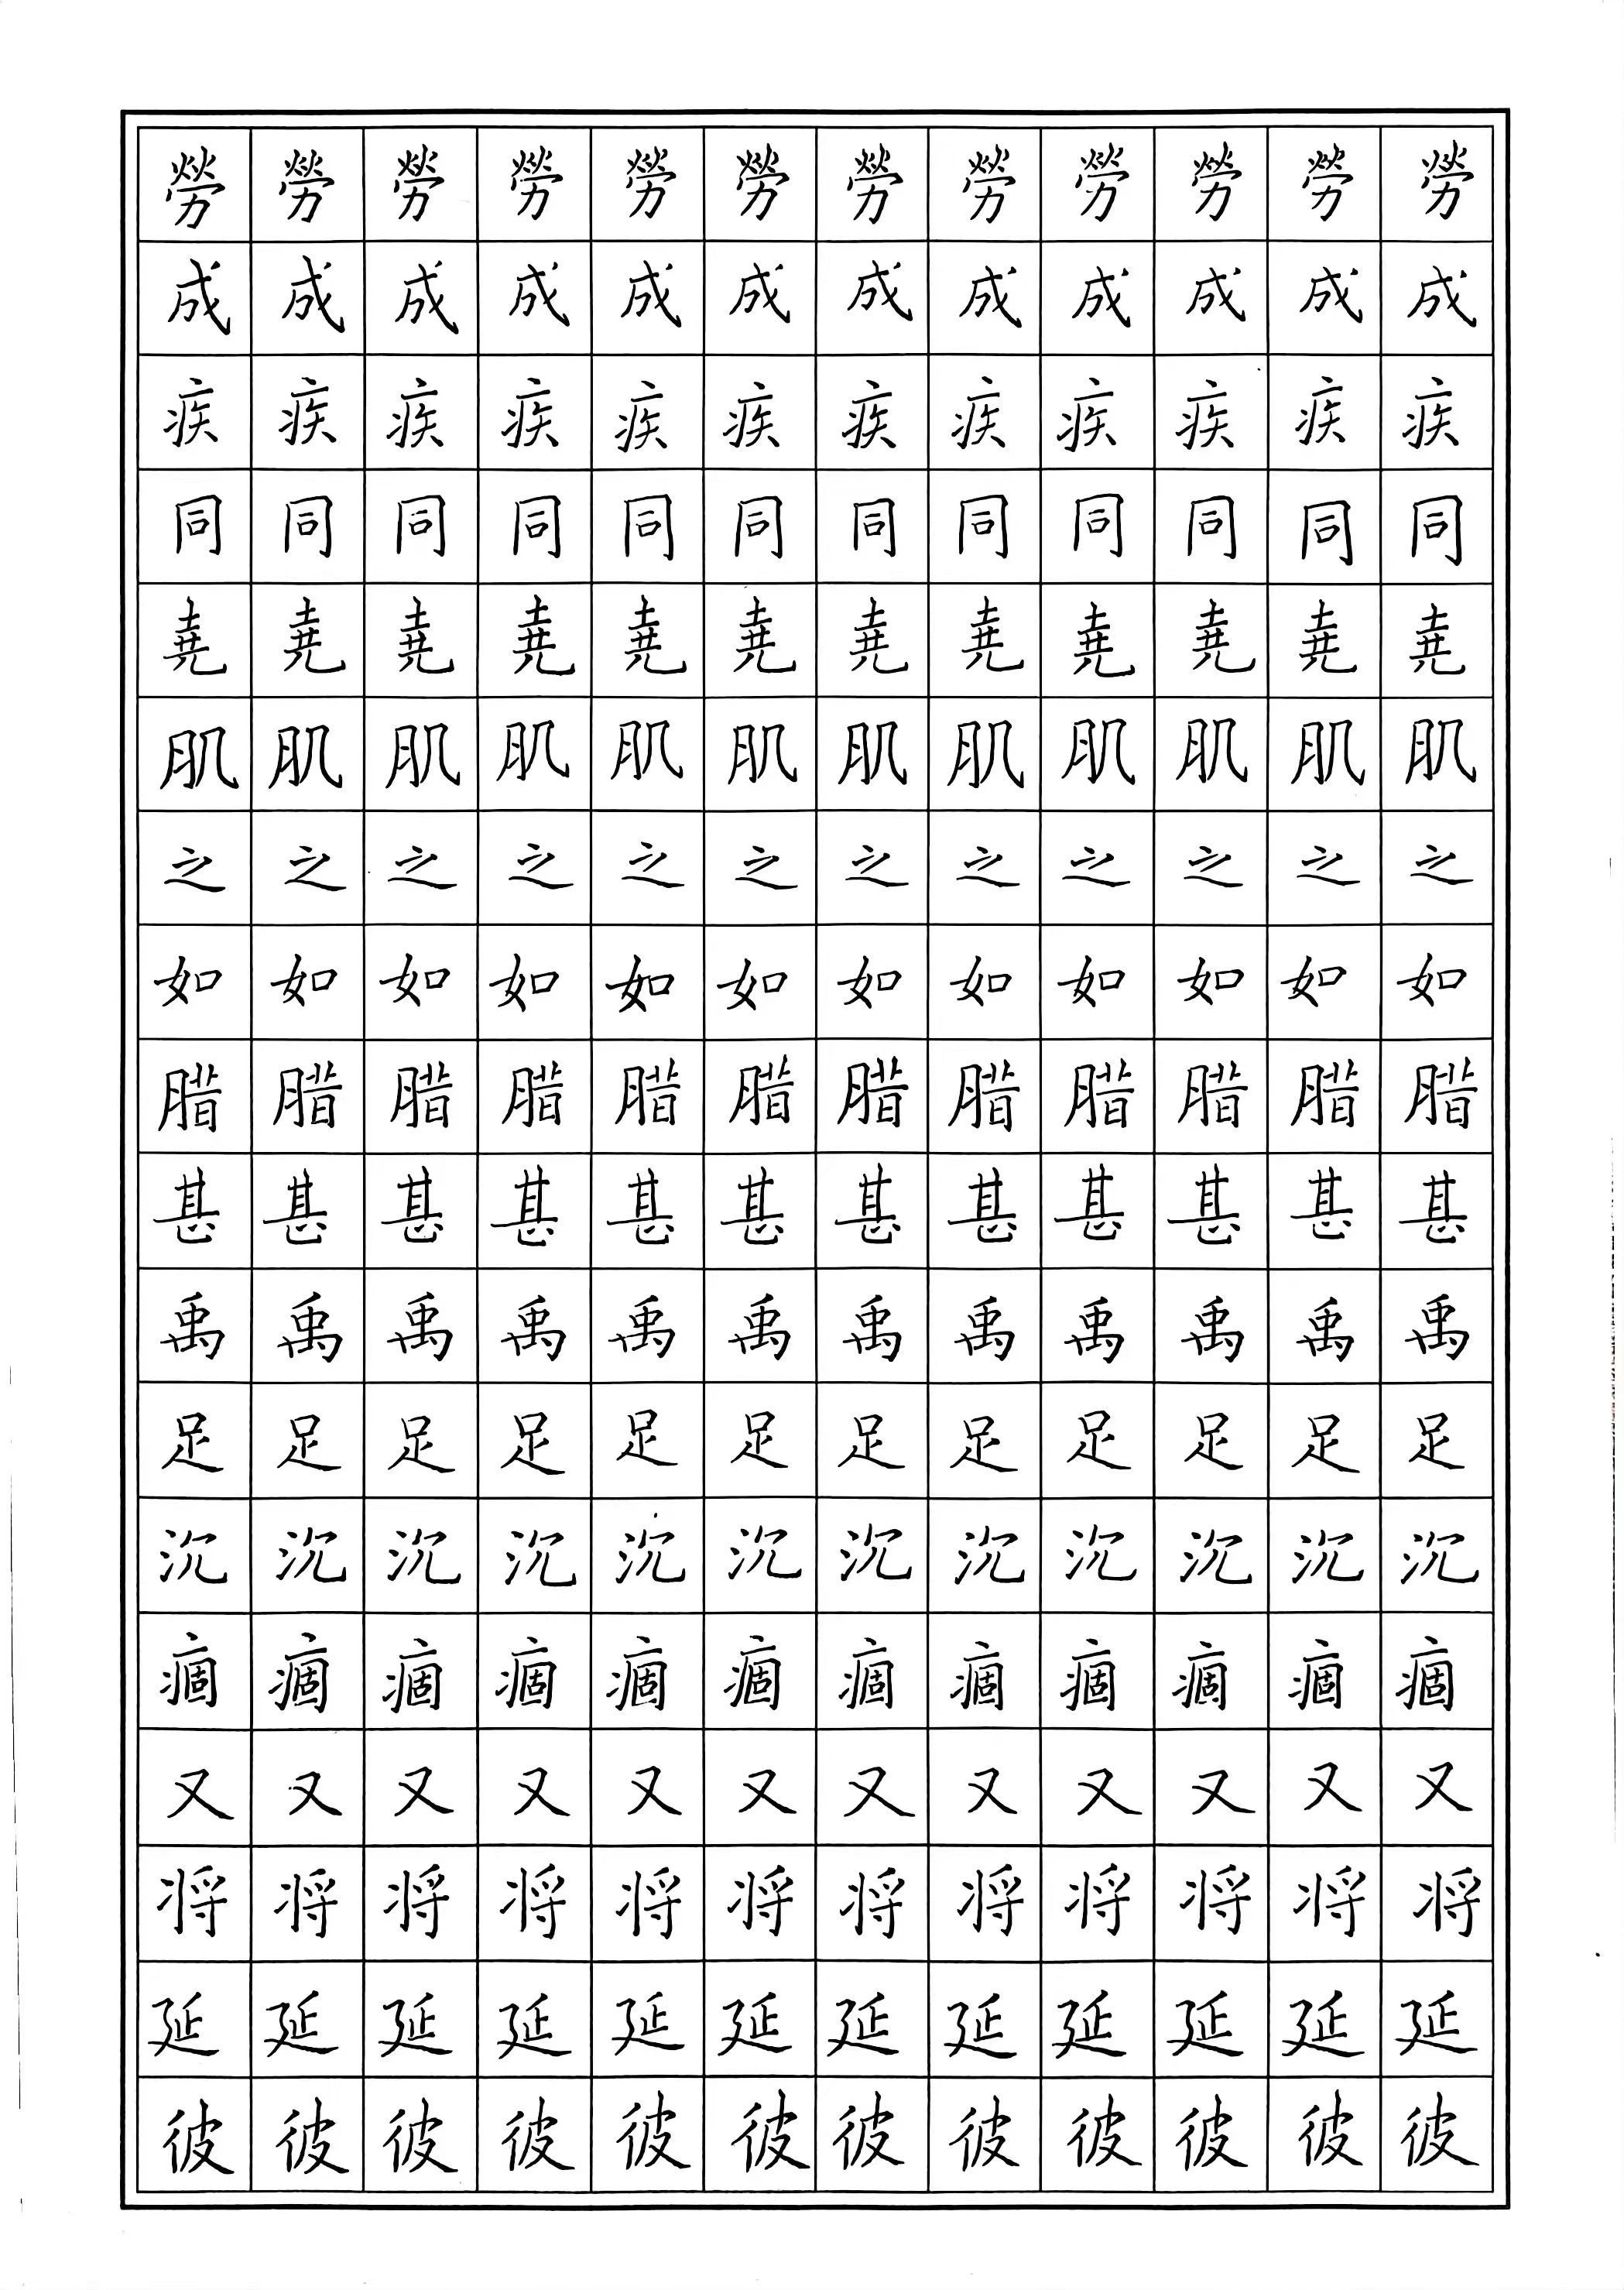 勞勞勞勞勞勞勞勞勞勞勞勞
成成成成成成成成成成成成
疾疾疾疾疾疾疾疾疾疾疾疾
同同同同同同同同同同同同
堯堯堯堯堯堯堯堯堯堯堯堯
肌肌肌肌肌肌肌肌肌肌肌肌
之之之之之之之之之之之之
如如如如如如如如如如如如
腊腊腊腊腊腊腊腊腊腊腊腊
甚甚甚甚甚甚甚甚甚甚甚甚
禹禹禹禹禹禹禹禹禹禹禹禹
足足足足足足足足足足足足
沉沉沉沉沉沉沉沉沉沉沉沉
痼痼痼痼痼痼痼痼痼痼痼痼
又又又又又又又又又又又又
将将将将将将将将将将将将
延延延延延延延延延延延延
彼彼彼彼彼彼彼彼彼彼彼彼